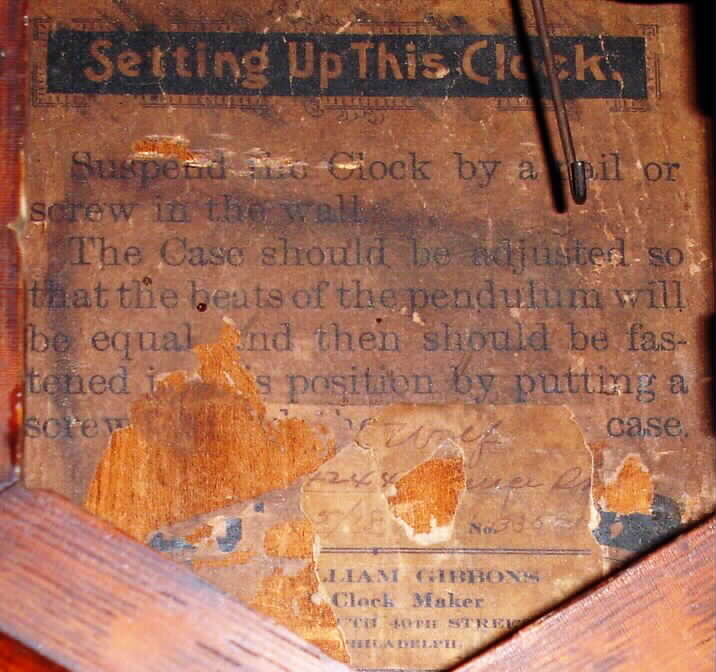 Setting Up This Clock.
Suspend the Clock by a nail or
screw in the wall.
The Case should be adjusted so
that the beats of the pendulum will
be equal and then should be fas-
tened in this position by putting a
screw the case.
Wolf
5/18 No.
LLIAM GIBBONS
Clock Maker
UTH 40TH STREET
PHILADELPH